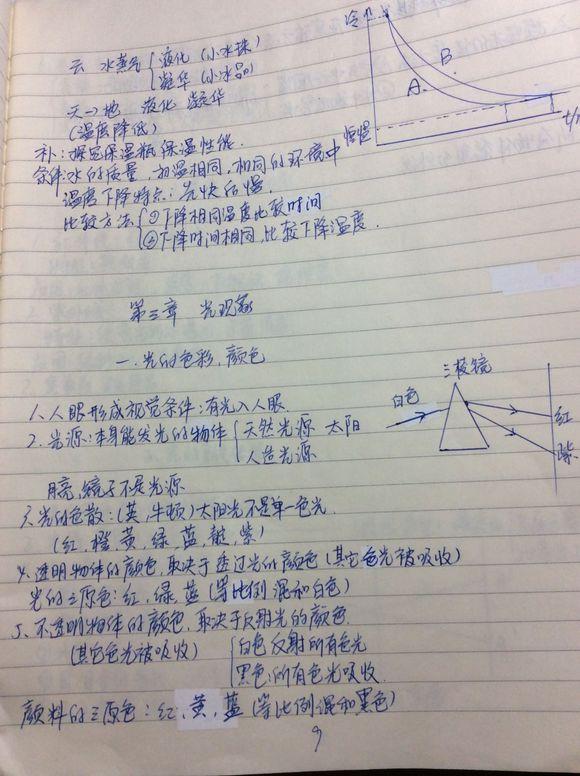 云 水蒸气 液化 (小水珠)
凝华 (小冰晶)
天→地 液化 凝华
(温度降低)
补:探究保温瓶保温性能.
条件:水的质量, 初温相同, 相同的环境中
温度下降特点: 先快后慢.
比较方法 ①下降相同温度比较时间
②下降时间相同, 比较下降温度.
B
A
t/
第三章 光现象
一. 光的色彩, 颜色
1. 人眼形成视觉条件: 有光入人眼.
2. 光源: 本身能发光的物体 天然光源 太阳
人造光源
三棱镜
白色
红
紫
月亮, 镜子不是光源
3. 光的色散: (英, 牛顿) 太阳光不是单一色光.
(红, 橙, 黄, 绿, 蓝, 靛, 紫)
4. 透明物体的颜色, 取决于透过光的颜色 (其它色光被吸收)
光的三原色: 红, 绿, 蓝 (等比例混和白色)
5. 不透明物体的颜色, 取决于反射光的颜色.
(其它色光被吸收) 白色反射所有色光
黑色:所有色光吸收.
颜料的三原色: 红, 黄, 蓝 (等比例混和黑色)
9